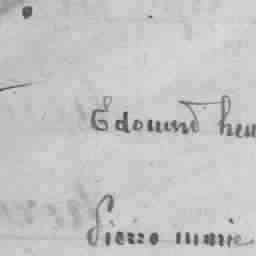 Edouard hen
Pierre marie